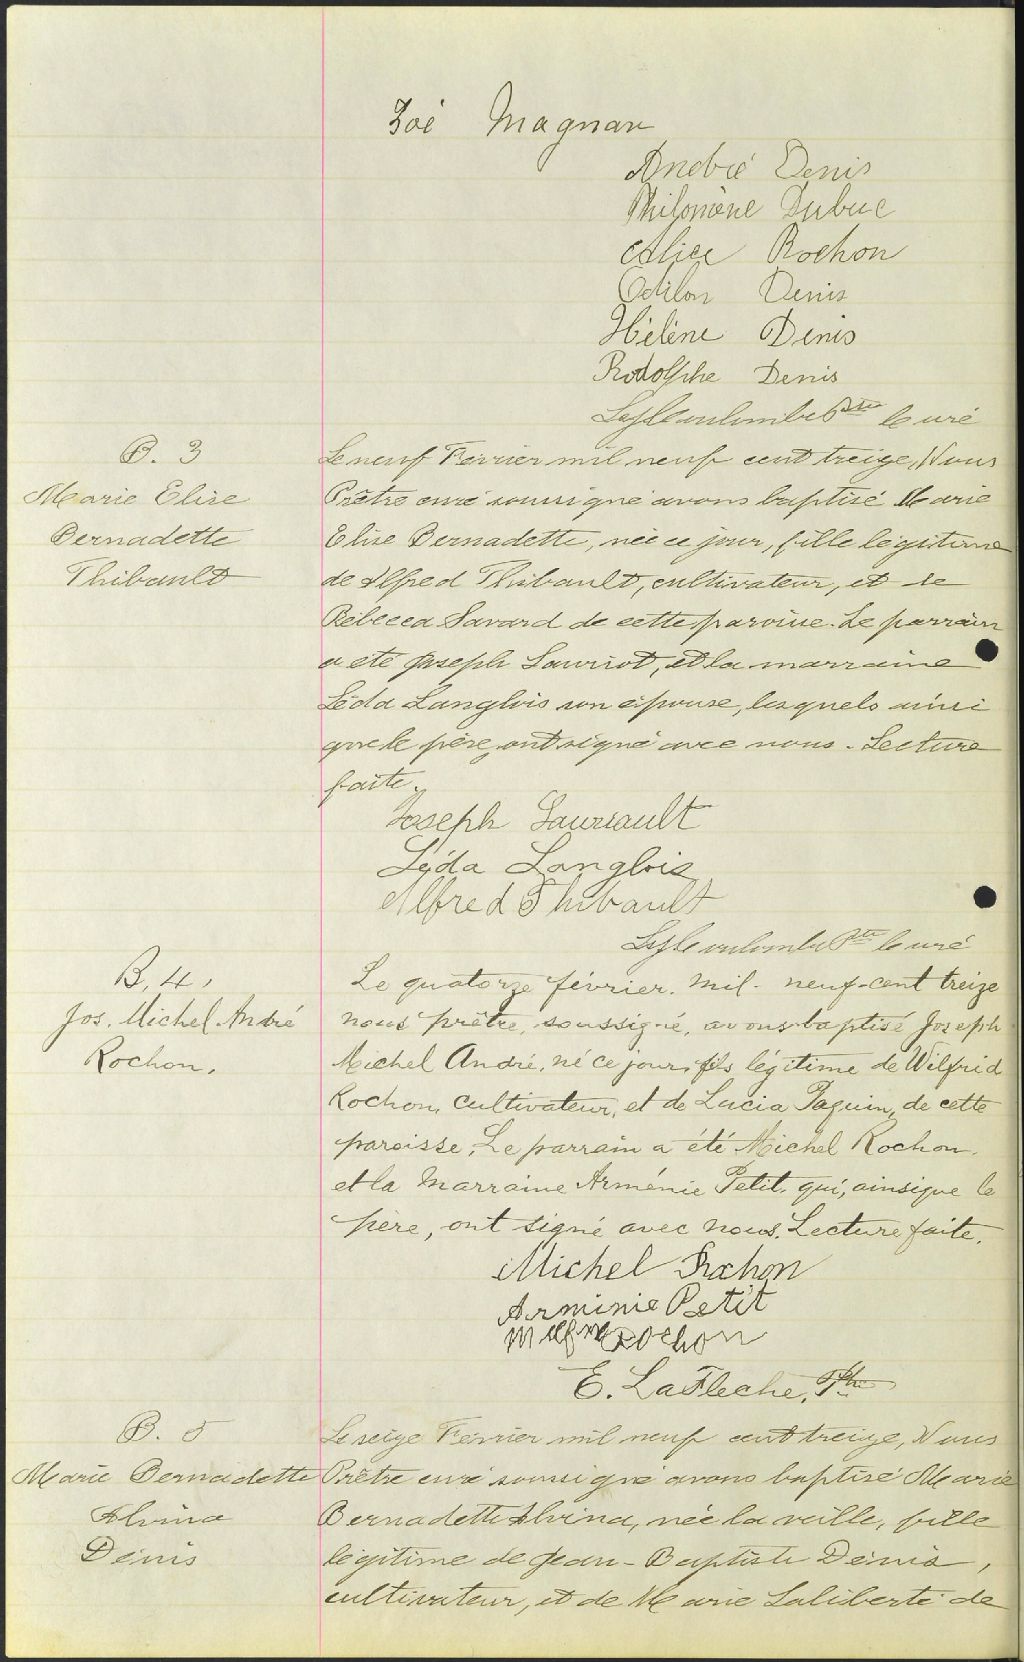 Zoé Magnan
André Denis
Philomène Dubuc
Alice Rochon
Odilon Denis
Hélène Denis
Rodolphe Denis
Ptre Curé
B. 3
Marie Elise
Bernadette
Thibault
Le neuf Février mil neuf cent treize, Nous
Prêtre curé soussigné avons baptisé Marie
Elise Bernadette, née ce jour, fille légitime
de Alfred Thibault, cultivateur, et de
Rébecca Savard de cette paroisse. Le parrain
a été Joseph Lauriot, et la marraine
Léda Langlois son épouse, lesquels ainsi
que le père, ont signé avec nous. Lecture
faite.
Joseph Laurault
Léda Langlois
Alfred Thibault
Ptre Curé
B. 4,
Jos. Michel André
Rochon.
Le quatorze février. mil- neuf-cent treize
nous prêtre, soussigné, avons baptisé Joseph
Michel André, né ce jour, fils légitime de Wilfrid
Rochon, cultivateur, et de Lucia Paquin, de cette
paroisse. Le parrain a été Michel Rochon.
et la Marraine Arménie Petit, qui, ainsique le
père, ont signé avec nous. Lecture faite.
Michel Rochon
Arminie Petit
Rochon
E. LaFleche, Ptre
B. 5
Marie Bernadette
Alvina
Dénis
Le seize Février mil neuf cent treize, Nous
Prêtre curé soussigné avons baptisé Marie
Bernadette Alvina, née la veille, fille
légitime de Jean-Baptiste Dénis,
cultivateur, et de Marie Laliberté de